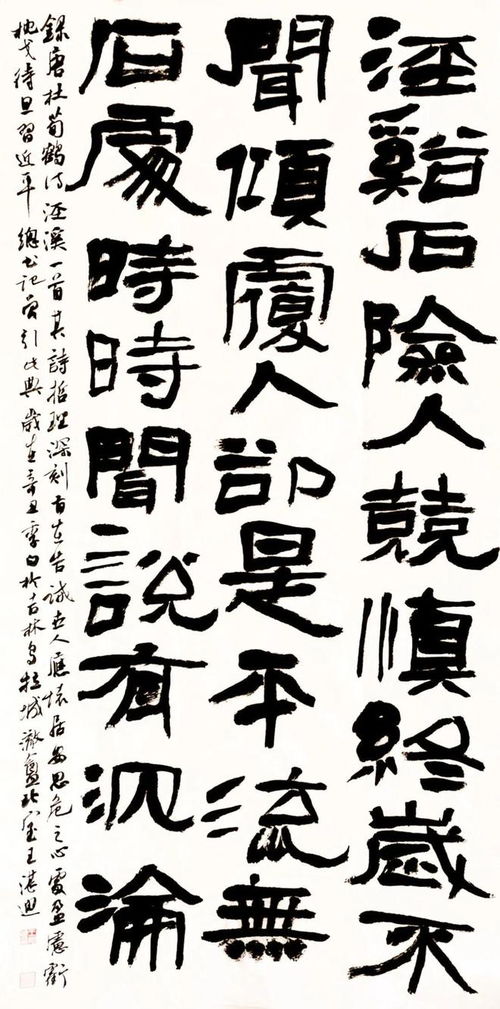 涇谿石險人兢慎終歲不
聞傾覆人卻是平流無
石處時時聞說有沉淪
錄唐杜荀鶴詩涇溪一首其詩哲理深刻旨在告誡世人應懷居安思危之心處盈慮虧
枕戈待旦習近平總書記曾引此典歲在辛丑季於吉林烏拉城北王湛